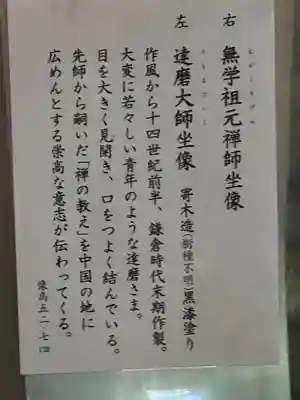 右 無学祖元禅師坐像
むがくそげん
左 達磨大師坐像 寄木造(樹種不明)黒漆塗り
だるまたいし
作風から十四世紀前半、鎌倉時代末期作製。
大変に若々しい青年のような達磨さま。
目を大きく見開き、口をつよく結んでいる。
先師から嗣いだ「禅の教え」を中国の地に
広めんとする崇高な意志が伝わってくる。
像高五二・七㎝